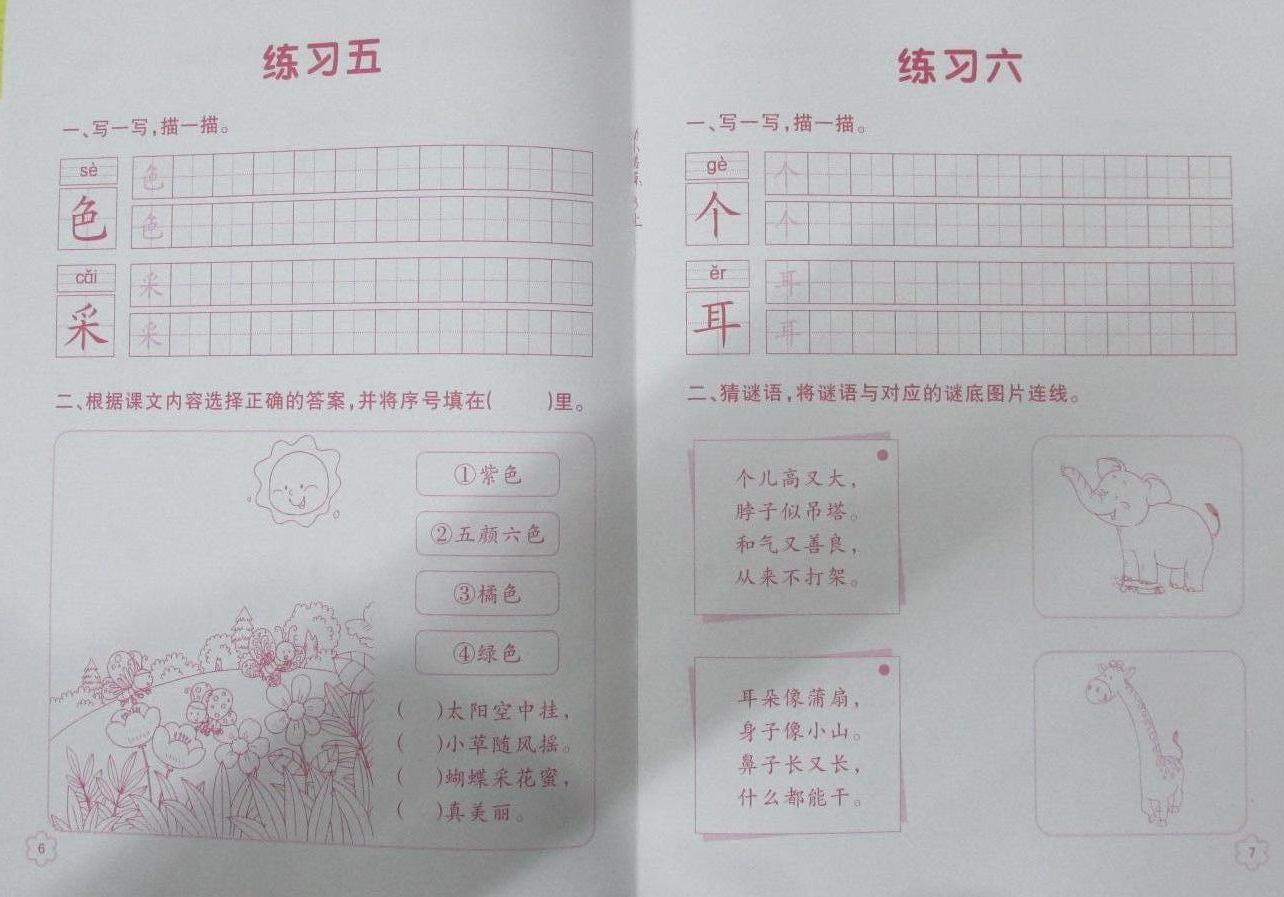 练习五
一、写一写,描一描。
sè
色
色
色
cǎi
采
采
采
二、根据课文内容选择正确的答案,并将序号填在( )里。
①紫色
②五颜六色
③橘色
④绿色
( )太阳空中挂,
( )小草随风摇。
( )蝴蝶采花蜜,
( )真美丽。
6
练习六
一、写一写,描一描。
gè
个
个
个
ěr
耳
耳
耳
二、猜谜语,将谜语与对应的谜底图片连线。
个儿高又大,
脖子似吊塔。
和气又善良,
从来不打架。
耳朵像蒲扇,
身子像小山。
鼻子长又长,
什么都能干。
7